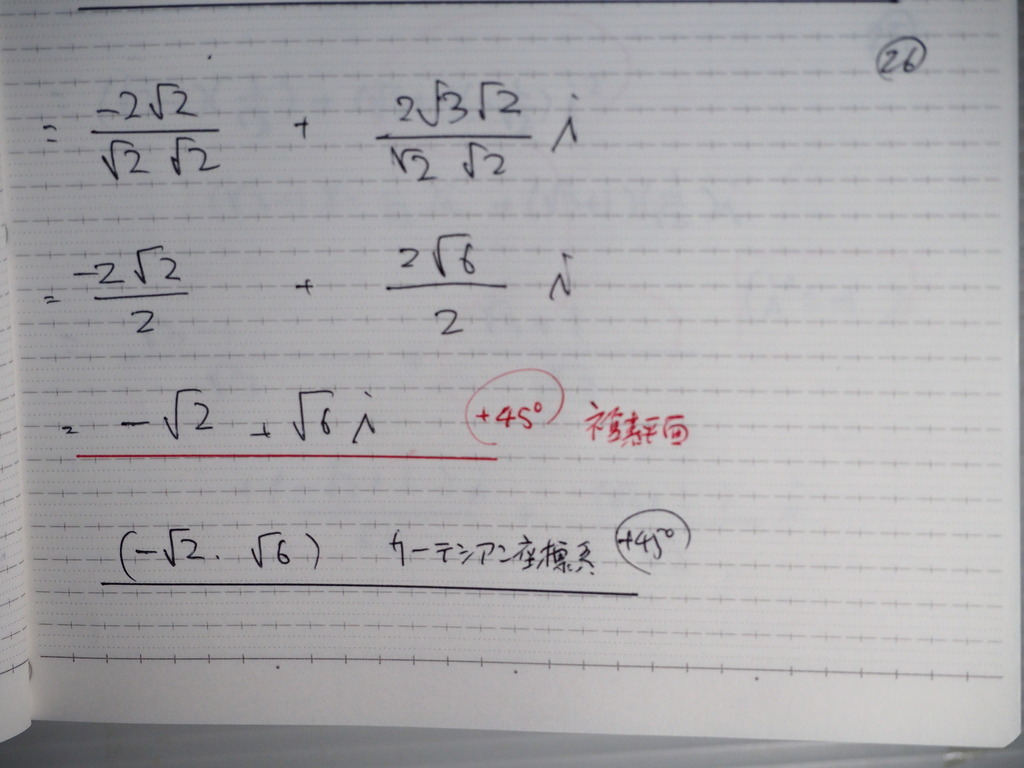 26
= -2√2 / √2 √2 + 2√3√2 / √2 √2 i
= -2√2 / 2 + 2√6 / 2 i
= -√2 + √6 i +45° 複素平面
(-√2. √6) カーテシアン座標系 +45°